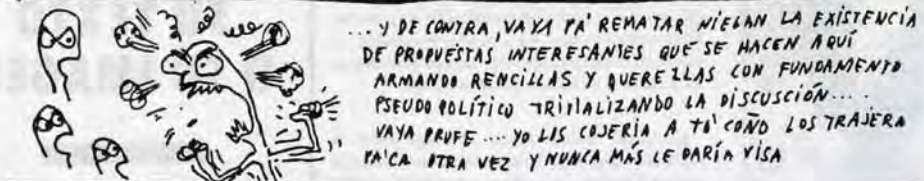 ... Y DE CONTRA, VAYA PA' REMATAR NIEGAN LA EXISTENCIA
DE PROPUESTAS INTERESANTES QUE SE HACEN AQUÍ
ARMANDO RENCILLAS Y QUERELLAS CON FUNDAMENTO
PSEUDO POLÍTICO TRIVIALIZANDO LA DISCUSCIÓN....
VAYA PRUFE ... YO LIS COJERÍA A TO' COÑO LOS TRAJERA
PA'CA OTRA VEZ Y NUNCA MÁS LE DARÍA VISA